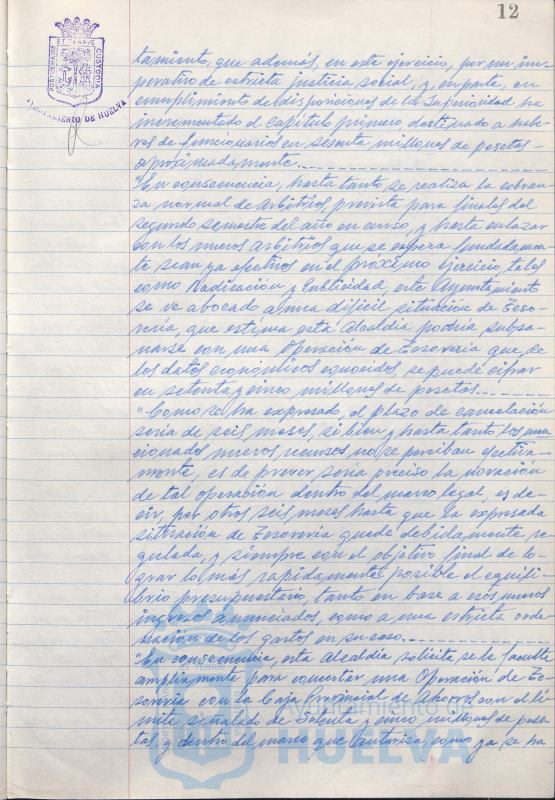 12
PORTUS MARIS ET TERRAE CUSTODIA
AYUNTAMIENTO DE HUELVA
tamiento, que además, en este ejercicio, por un im-
perativo de estricta justicia social, y en parte, en
cumplimiento de disposiciones de la Superioridad ha
incrementado el capítulo primero destinado a habe-
res de funcionarios en sesenta millones de pesetas
aproximadamente.
"En consecuencia, hasta tanto se realiza la cobran-
za normal de Arbitrios, prevista para finales del
segundo semestre del año en curso, y hasta enlazar
con los nuevos arbitrios que se espera fundadamen-
te sean ya efectivos en el próximo ejercicio, tales
como Radicación y Publicidad, este Ayuntamiento
se ve abocado a una difícil situación de Teso-
rería, que estima esta Alcaldía podría subsa-
narse con una Operación de Tesorería que, de
los datos económicos conocidos, se puede cifrar
en setenta y cinco millones de pesetas.
"Como se ha expresado, el plazo de cancelación
sería de seis meses, si bien y hasta tanto los men-
cionados nuevos recursos no se perciban efectiva-
mente, es de prever sería preciso la novación
de tal operación dentro del marco legal, es de-
cir, por otros seis meses hasta que la expresada
situación de Tesorería quede debidamente re-
gulada, y siempre con el objetivo final de lo-
grar lo más rápidamente posible el equili-
brio presupuestario, tanto en base a esos nuevos
ingresos anunciados, como a una estricta orde-
nación de los gastos en su caso.
"En consecuencia, esta Alcaldía solicita se le faculte
ampliamente para concertar una Operación de Te-
sorería con la Caja Provincial de Ahorros con el lí-
mite señalado de Setenta y cinco millones de pese-
tas, y dentro del marco que autoriza, como ya se ha
Ayuntamiento de
HUELVA